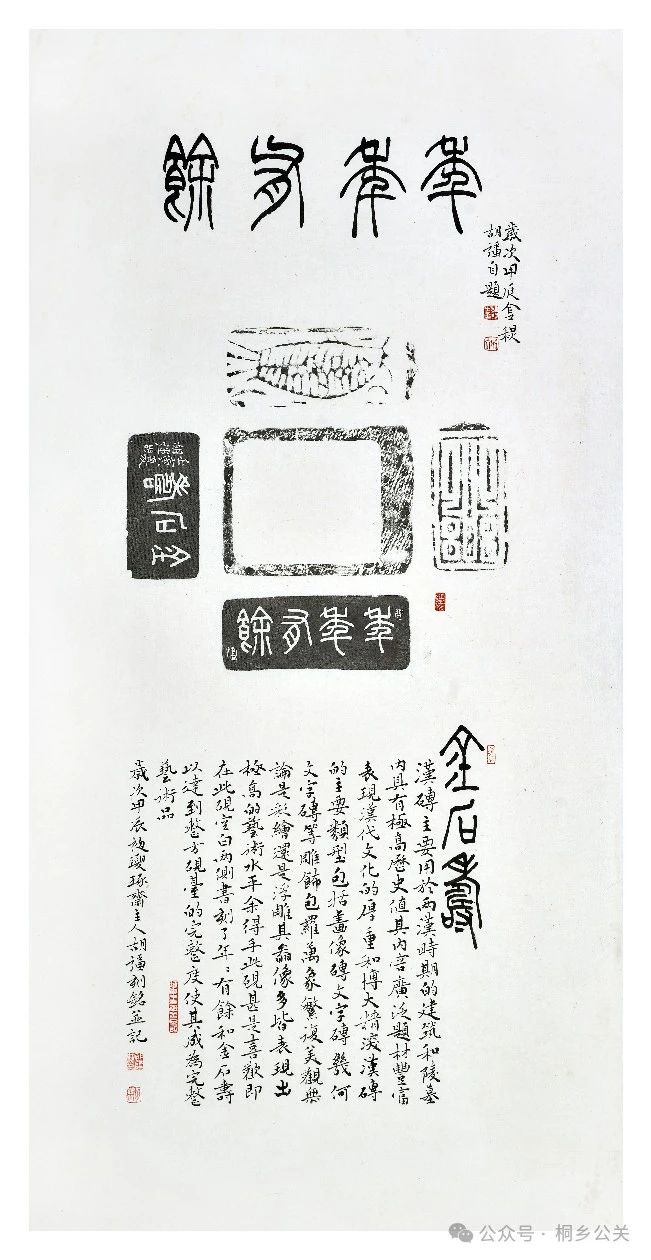 年年有餘
歲次甲辰金秋
胡自題
金石壽
年年有餘
金石壽
漢磚主要用於两漢時期的建筑和陵墓
内具有極高歷史值其内容廣泛題材豐富
表現漢代文化的厚重和博大精深漢磚
的主要類型包括畫像磚文字磚幾何
文字磚等雕飾包羅萬象繁復美觀無
論是彩繪還是浮雕其畫像多皆表現出
極高的藝術水平余得手此硯甚是喜歡即
在此硯空白两側書刻了年々有餘和金石壽
以達到整方硯臺的完整度使其成為完整
藝術品
歲次甲辰琢齋主人胡制銘並記
公众号·桐乡公关